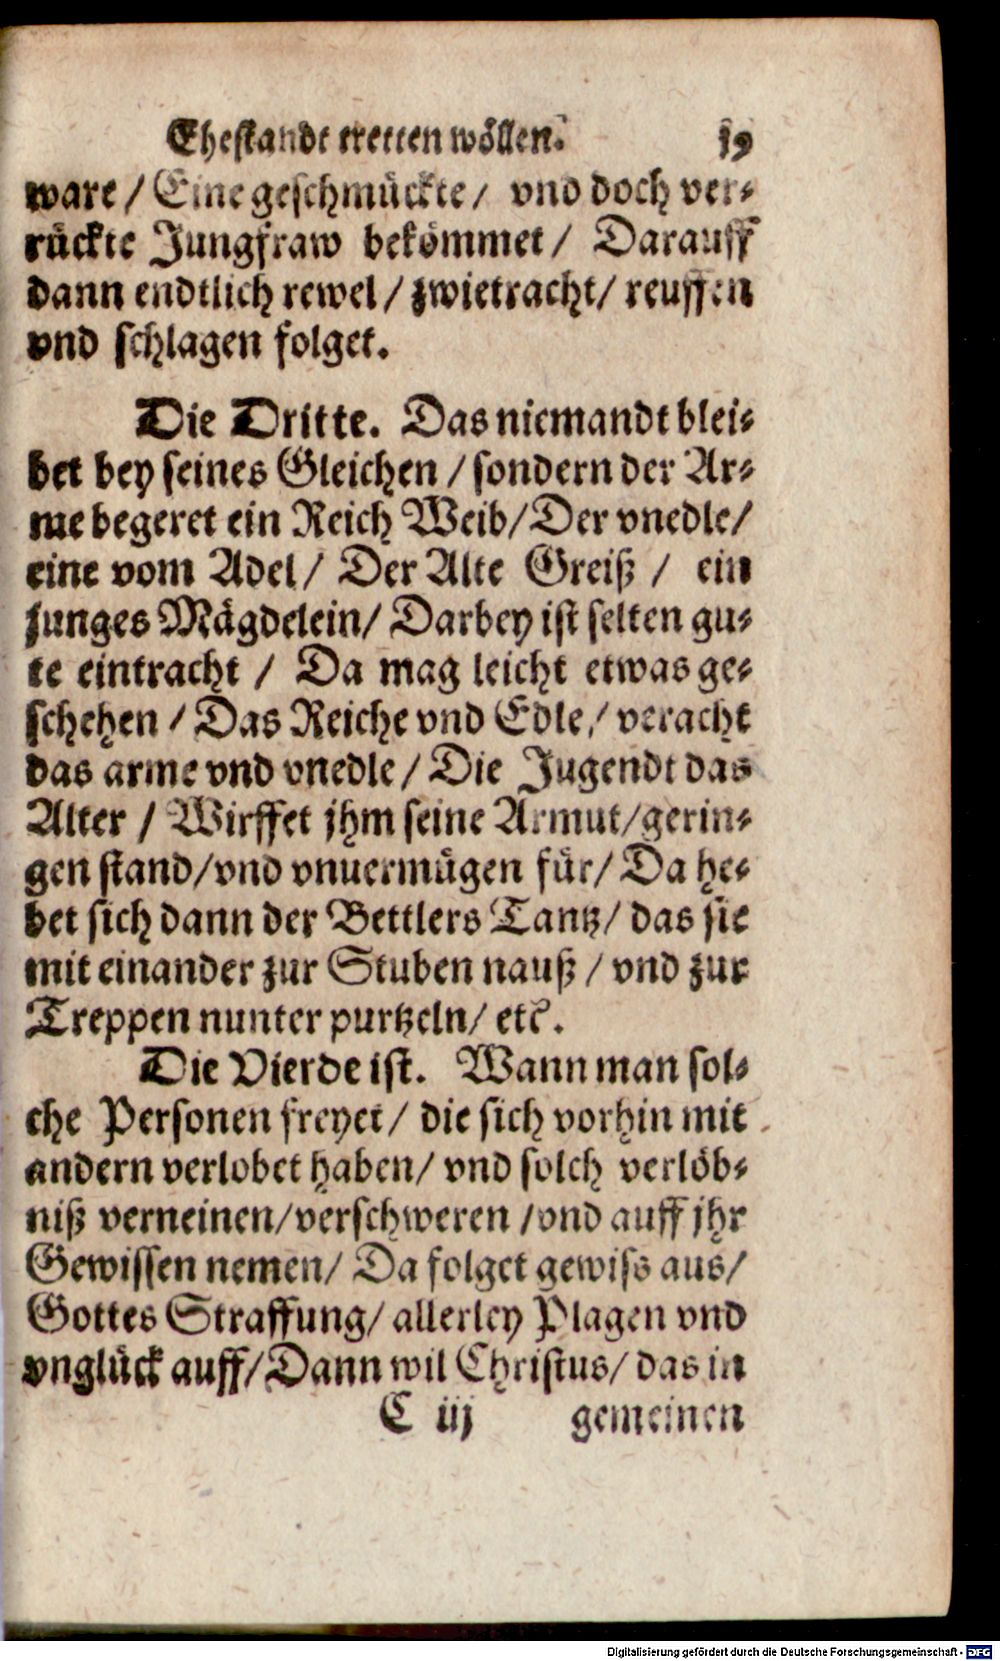 Ehestandt tretten wöllen. 19
ware / Eine geschmückte / vnd doch ver-
rückte Jungfraw bekömmet / Darauff
dann endtlich rewel / zwietracht / reuffen
vnd schlagen folget.
Die Dritte. Das niemandt blei-
bet bey seines Gleichen / sondern der Ar-
me begeret ein Reich Weib / Der vnedle /
eine vom Adel / Der Alte Greiß / ein
junges Mägdelein / Darbey ist selten gu-
te eintracht / Da mag leicht etwas ge-
schehen / Das Reiche vnd Edle / veracht
das arme vnd vnedle / Die Jugendt das
Alter / Wirffet jhm seine Armut / gerin-
gen stand / vnd vnuermügen für / Da he-
bet sich dann der Bettlers Tantz / das sie
mit einander zur Stuben nauß / vnd zur
Treppen nunter purtzeln / etc.
Die Vierde ist. Wann man sol-
che Personen freyet / die sich vorhin mit
andern verlobet haben / vnd solch verlöb-
niß verneinen / verschweren / vnd auff jhr
Gewissen nemen / Da folget gewiss aus /
Gottes Straffung / allerley Plagen vnd
vnglück auff / Dann wil Christus / das in
C iij gemeinen
Digitalisierung gefördert durch die Deutsche Forschungsgemeinschaft - DFG